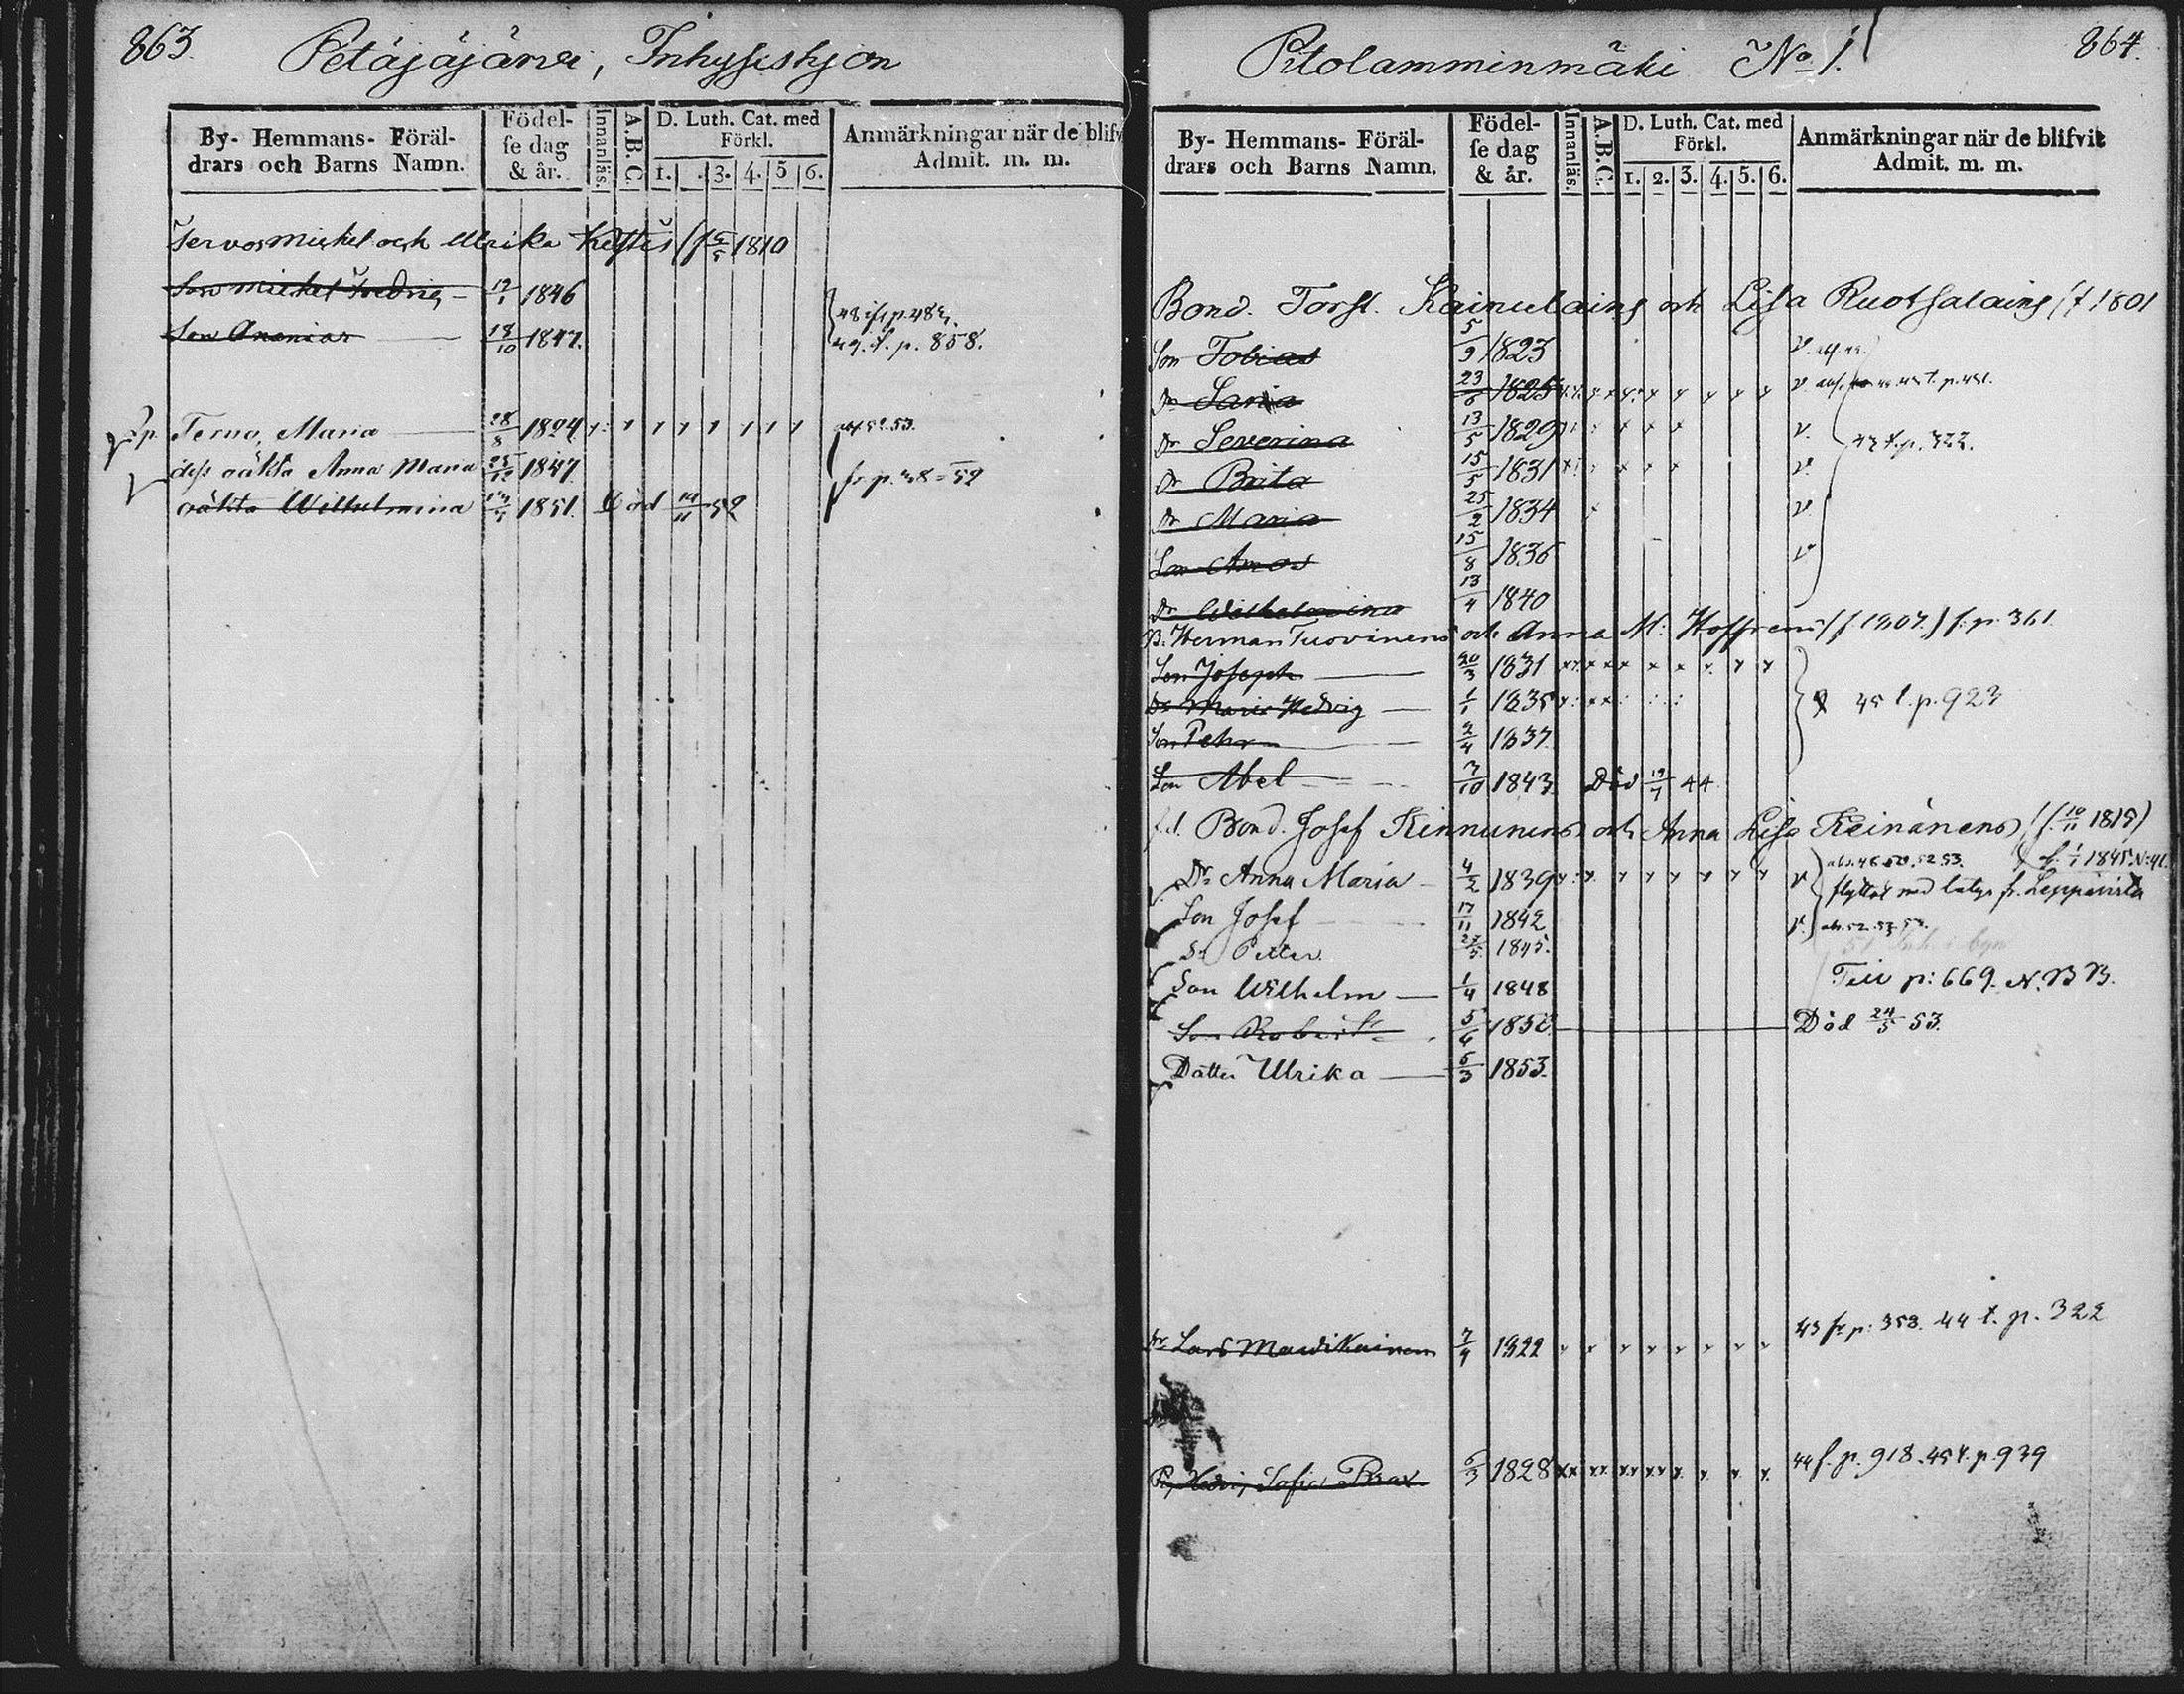 863.
Petäjäjärvi, Inhyseshjon
By- Hemmans- Föräl-
drars och Barns Namn.
Födel-
se dag
& år.
Innanläs.
A.B.C.
D. Luth. Cat. med
Förkl.
1. 3. 4. 5 6.
Anmärkningar när de blifv
Admit. m. m.
Servos Mickel och Ulrika (f 1810
Son Mickel Fredrig 1846
Son Ananias 18/10 1847. t. p. 858.
Terno, Maria 28/8 1824 52.53.
dess oäkta Anna Maria 1847 fr. p. 38 = 52
oäkta Wilhelmina 1851. Död 52
864.
Pitolamminmäki No 1.
By- Hemmans- Föräl-
drars och Barns Namn.
Födel-
se dag
& år.
Innanläs.
A.B.C.
D. Luth. Cat. med
Förkl.
1. 2. 3. 4. 5. 6.
Anmärkningar när de blifvit
Admit. m. m.
Bond. Torst. Kainulaing och Lisa Ruotsalaing (f 1801
Son Tobias 5/9 1823 v.
Dr 23/6 1825 v
Dr Severina 13/5 1829 v. t. p. 322.
Dr Brita 15/5 1831 v.
Dr Maria 25/2 1834 v
Son Amos 15/8 1836 v
Dr Wilhelmina 13/4 1840
B. Herman Tuovinens och Anna M: Hoffrens (f 1807.) f. p. 361
Son Joseph 20/3 1831
Dr Maria Hedvig 1/1 1835 45 t. p. 923
Son Pehr 2/4 1837
Son Abel 3/10 1843 Död 44
f.d. Bond. Josef Kinnunens och Anna Lisa Keinänens (f. 10/11 1818)
Dr Anna Maria 4/2 1839 v 52 53. 1/1 1845. N:
flyttat med betyg fr. Leppävirta
Son Josef 17/11 1842 v.
Sn Petter 1845.
Son Wilhelm 1/4 1848 p: 669. N. B B.
Son Robert 5/6 Död 24/5 53.
Dotter Ulrika 5/3 1853.
Lars 1822 43 fr p: 358. 44 t. p. 322
Sofia Brax 6/3 1828 44 f. p. 918. 45 t. p. 939